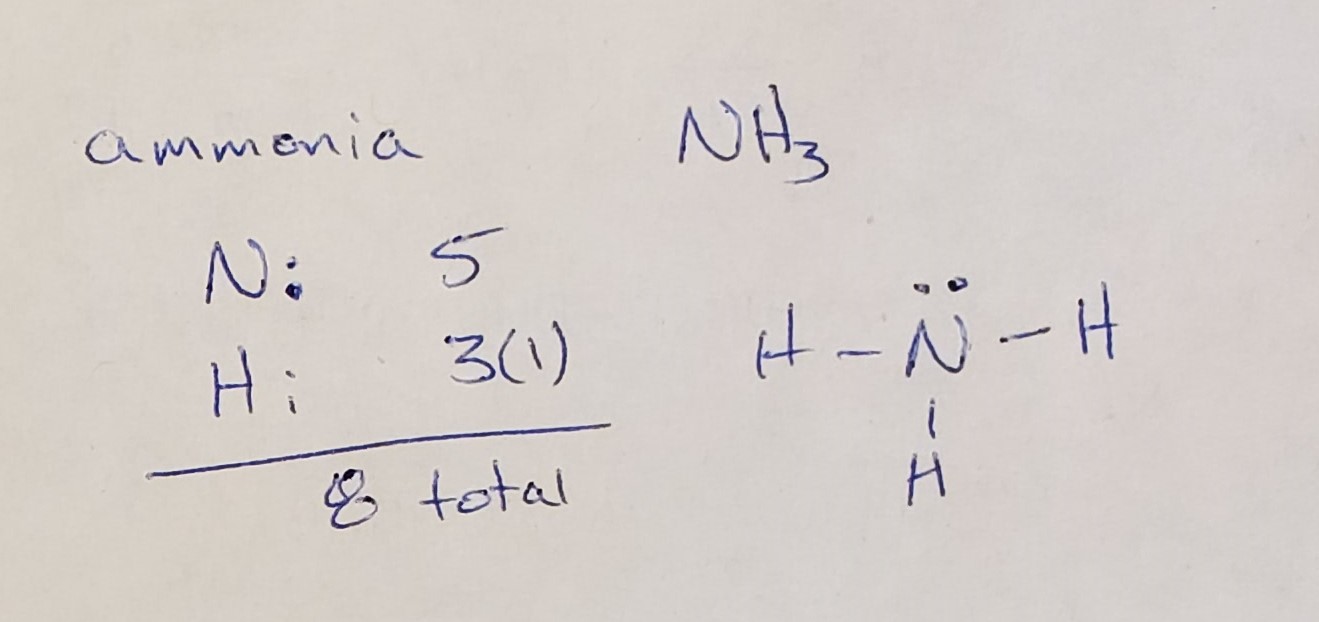 ammonia NH₃
N: 5
H: 3(1)
8 total
H - N̈ - H
|
H